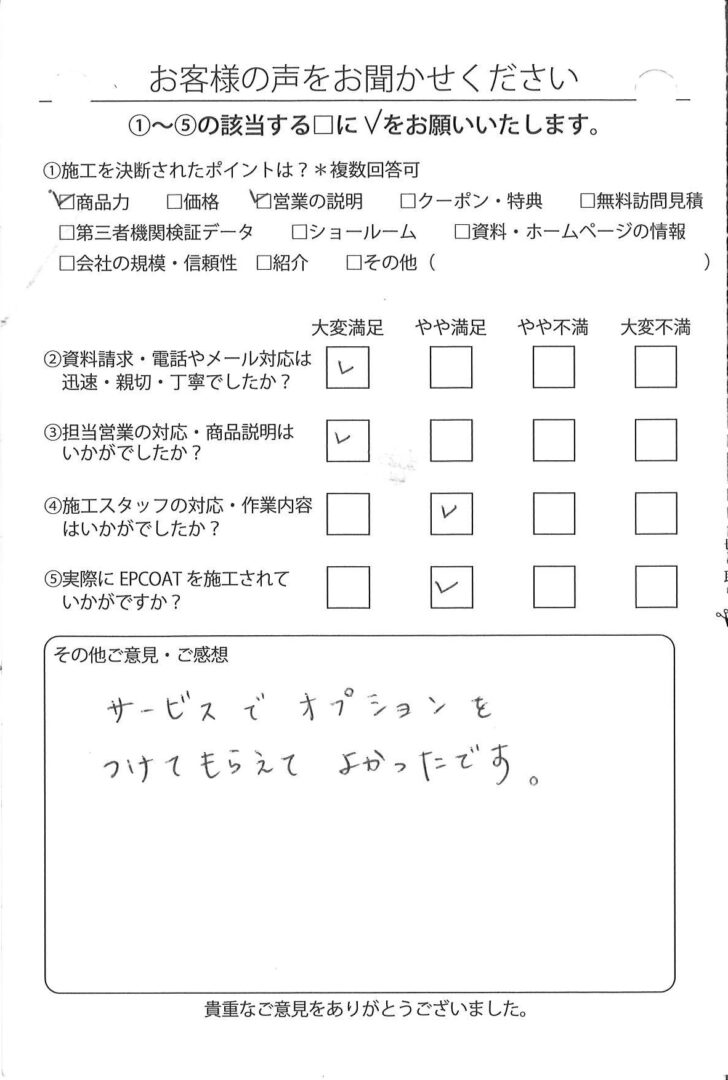 お客様の声をお聞かせください
①〜⑤の該当する□に√をお願いいたします。
①施工を決断されたポイントは？＊複数回答可
☑商品力 □価格 ☑営業の説明 □クーポン・特典 □無料訪問見積
□第三者機関検証データ □ショールーム □資料・ホームページの情報
□会社の規模・信頼性 □紹介 □その他（ ）
大変満足 やや満足 やや不満 大変不満
②資料請求・電話やメール対応は
迅速・親切・丁寧でしたか？
③担当営業の対応・商品説明は
いかがでしたか？
④施工スタッフの対応・作業内容
はいかがでしたか？
⑤実際に EPCOAT を施工されて
いかがですか？
その他ご意見・ご感想
サービスで オプションを
つけてもらえて よかったです。
貴重なご意見をありがとうございました。